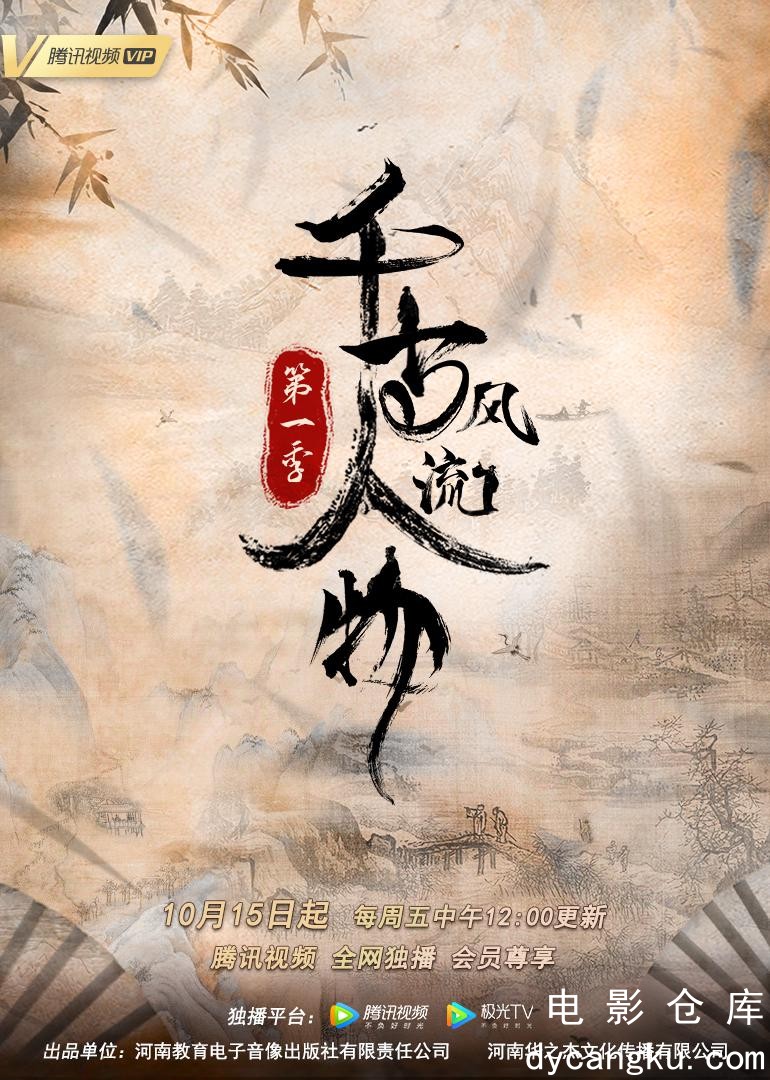 腾讯视频 VIP
千古风流人物
第一季
10月15日起 每周五中午12:00更新
腾讯视频 全网独播 会员尊享
独播平台: 腾讯视频 不负好时光 极光TV 不负好时光
电影仓库
出品单位: 河南教育电子音像出版社有限责任公司 河南华之杰文化传播有限公司
dycangku.com